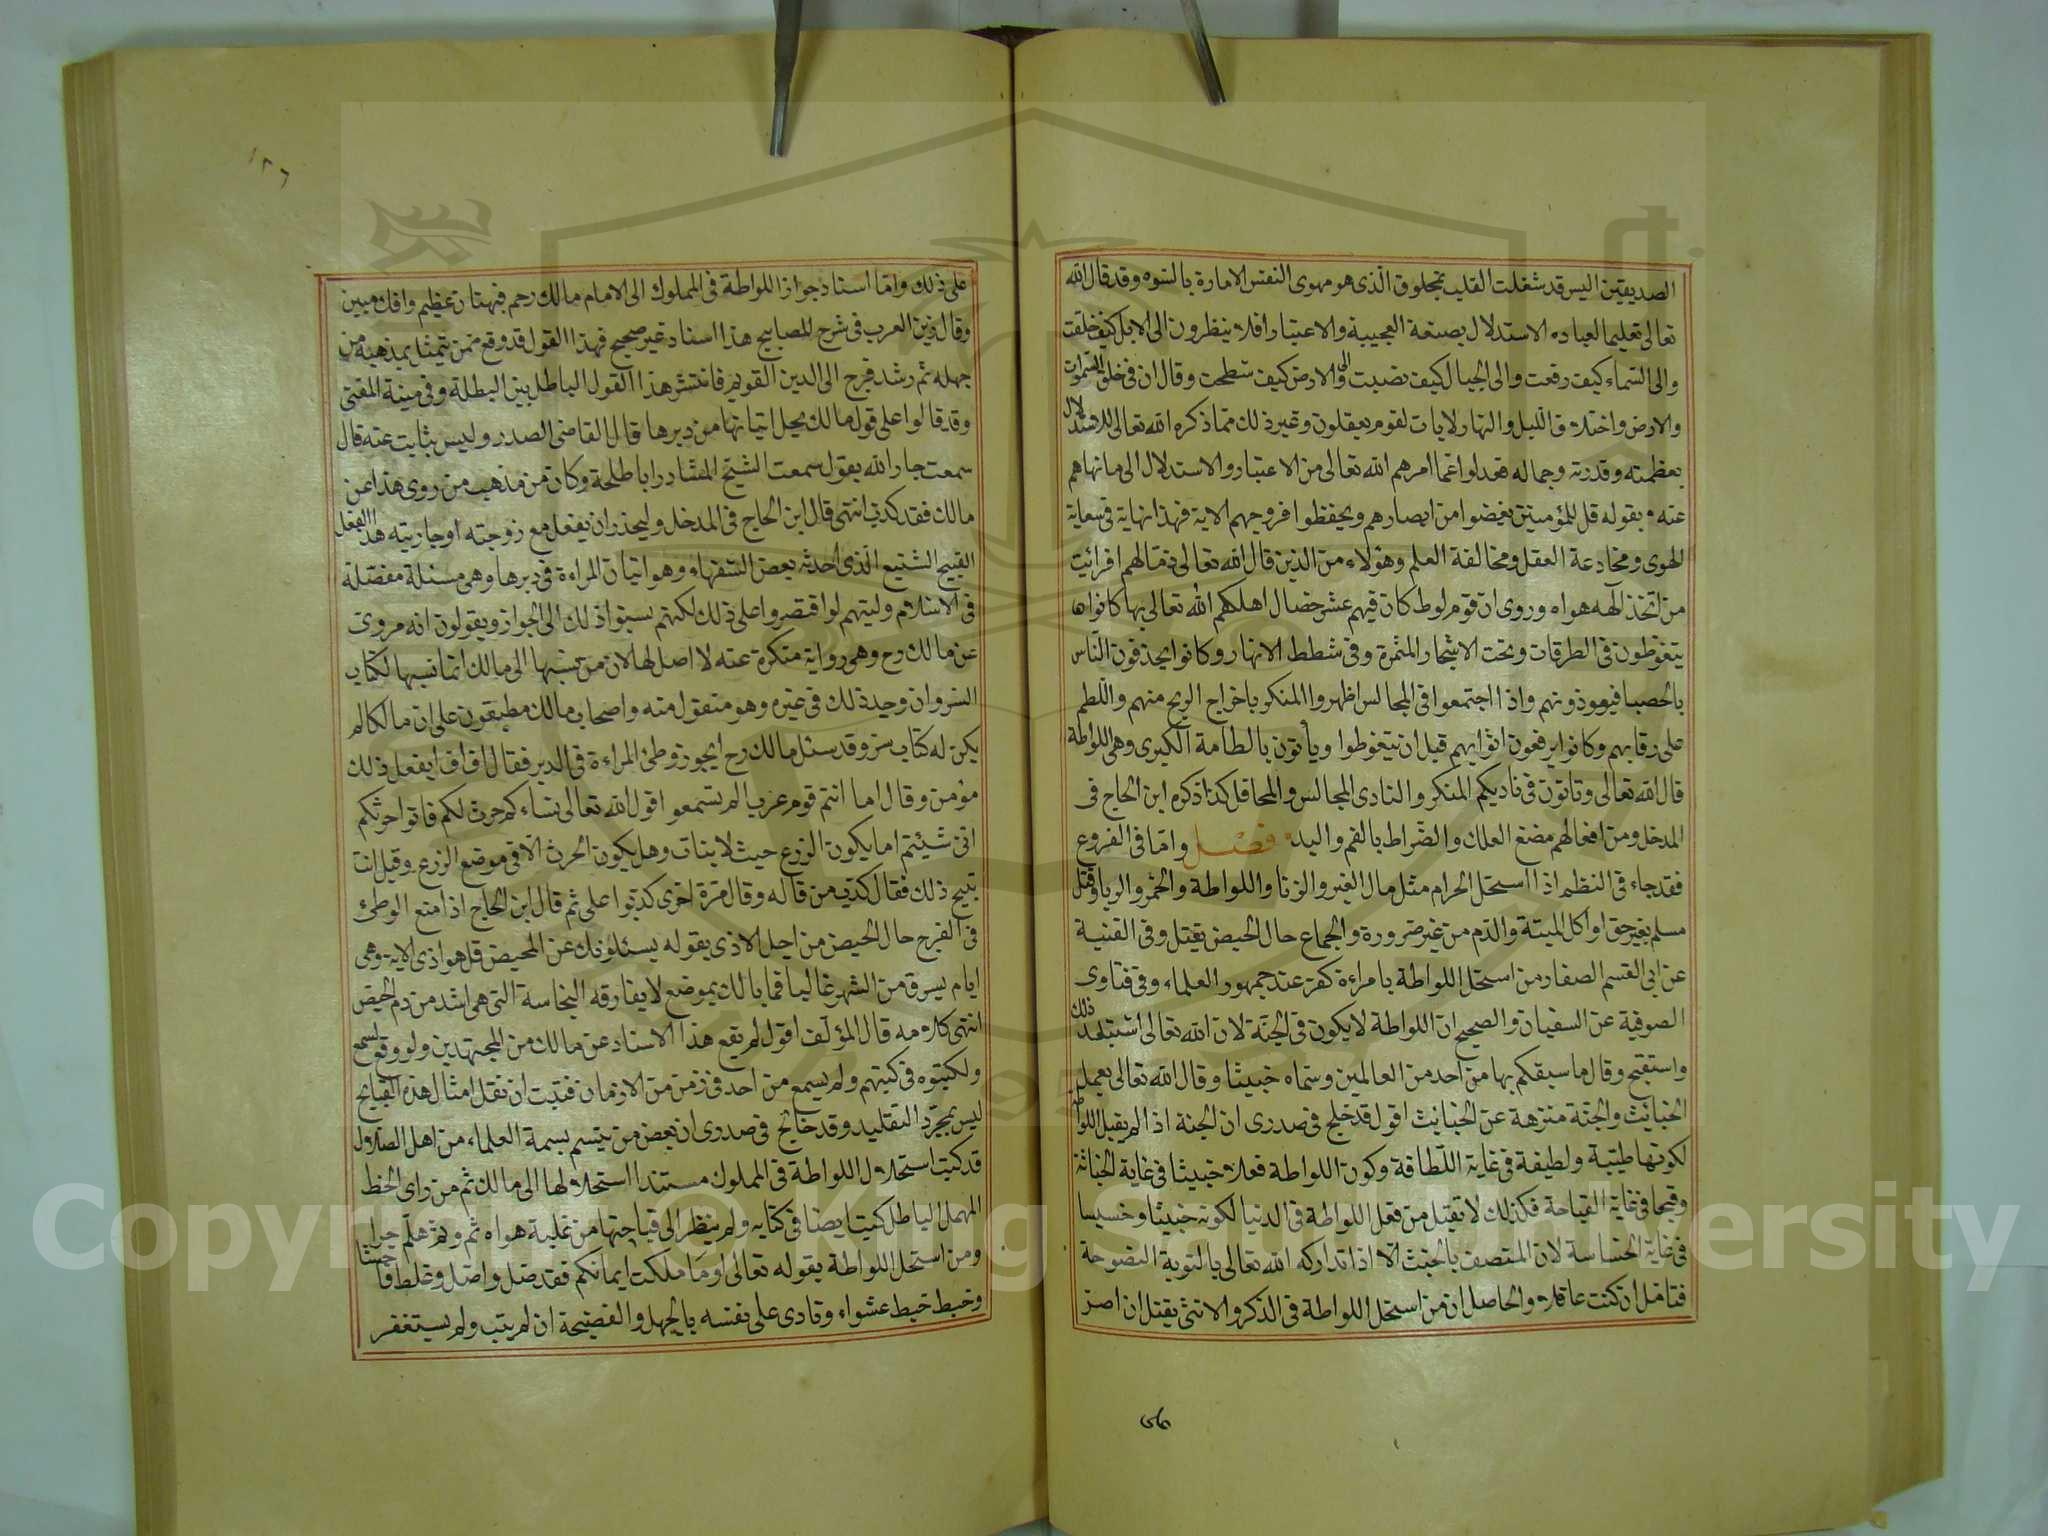 الصديقين اليس قد شغلت القلب بمخلوق الّذى هو مهوى النفس الامارة بالسّوء وقد قال الله
تعالى تعليما لعباده الاستدلال بصنعة العجيبة والاعتبار افلا ينظرون الى الابل كيف خلقت
والى السّماء كيف رفعت والى الجبال كيف نصبت والى الارض كيف سطحت وقال ان فى خلق السّموات
والارض واختلاف اللّيل والنهار لايات لقوم يعقلون وغير ذلك ممّا ذكره الله تعالى للاستدلال
بعظمته وقدرته وجماله فعدلوا عما امرهم الله تعالى من الاعتبار والاستدلال الى ما نهاهم
عنه بقوله قل للمؤمنين يغضوا من ابصارهم ويحفظوا فروجهم الاية فهذا نهاية فى سعاية
الهوى ومخادعة العقل ومخالفة العلم وهؤلاء من الذين قال الله تعالى ذمّا لهم افرائيت
من اتّخذ الهه هواه وروى ان قوم لوط كان فيهم عشر خصال اهلكهم الله تعالى بها كانوا
يتغوّطون فى الطرقات وتحت الاشجار المثمرة وفى شطط الانهار وكانوا يحذفون النّاس
بالحصبا فيعوذونهم واذا اجتمعوا فى المجالس اظهروا المنكر باخراج الريح منهم واللّطم
على رقابهم وكانوا يرفعون اثوابهم قبل ان يتغوطوا ويأتون بالطامة الكبرى وهى اللواطة
قال الله تعالى وتاتون فى ناديكم المنكر والنادى المجالس والمحافل كذا ذكره ابن الحاج فى
المدخل ومن افعالهم مضغ العلك والضّراط بالفم واليد فصل وامّا فى الفروع
فقد جاء فى النظم اذا استحل الحرام مثل مال الغير والزنا واللواطة والخمر والربا وقتل
مسلم بغير حق او اكل الميتة والدّم من غير ضرورة والجماع حال الحيض يقتل وفى القنية
عن ابى القسم الصفار من استحل اللواطة بامراءة كفر عند جمهور العلماء وفى فتاوى
الصوفية عن السفيان والصحيح ان اللواطة لا يكون فى الجنّة لان الله تعالى استبعد ذلك
واستقبح وقال ما سبقكم بها من احد من العالمين وسمّاه خبيثا وقال الله تعالى يعمل
الخبائث والجنّة منزهة عن الخبائث اقول قد خلج فى صدرى ان الجنة اذا لم يقبل اللواطة
لكونها طيّبة ولطيفة فى غاية اللّطافة وكون اللواطة فعلا خبيثا فى غاية الخباثة
وقبحا فى غاية القباحة فكذلك لا تقبل من فعل اللواطة فى الدنيا لكونه خبيثا وخسيسا
فى غاية الخساسة لان المتصف بالخبث الّا اذا تداركه الله تعالى بالتوبة النصوحة
فتامّل ان كنت عاقلا والحاصل ان من استحل اللواطة فى الذكر والانثى يقتل ان اصرّ
١٢٦
على ذلك وامّا اسناد جواز اللواطة فى المملوك الى الامام مالك رحم فبهتان عظيم وافك مبين
وقال زين العرب فى شرح المصابيح هذا اسناد غير صحيح فهذا القول قد وقع ممن يتمثل بمذهبه من
جهله ثم رشد فرج الى الدين القويم فانتشر هذا القول الباطل بين البطلة وفى منية المفتى
وقد قالوا على قول مالك يحل اتيانها من دبرها قال القاضى الصدر وليس بثابت عنه قال
سمعت جار الله يقول سمعت الشيخ ابا طلحة وكان من مذهب من روى هذا عن
مالك فقد كذب انتهى قال ابن الحاج فى المدخل وليحذر ان يفعل مع زوجته او جاريته هذا الفعل
القبيح الشنيع الّذى احدثه بعض السّفهاء وهو اتيان المراءة فى دبرها وهى مسئلة مفضلة
فى الاسلام وليتهم لو اقتصروا على ذلك لكنهم نسبوا ذلك الى الجواز ويقولون انه مروىّ
عن مالك رح وهى رواية منكرة عنه لا اصل لها لان من نسبها الى مالك انما نسبها لكتاب
السر وان وجد ذلك فى غيره وهو متقول منه واصحاب مالك مطبقون على ان مالكا لم
يكن له كتاب سر وقد سئل مالك رح ايجوز وطئ المراءة فى الدبر فقال اف اف ايفعل ذلك
مؤمن وقال اما انتم قوم عرب الم تسمعوا قول الله تعالى نساءكم حرث لكم فاتوا حرثكم
انّى شئيتم اما يكون الزرع حيث لا ينبات وهل يكون الحرث الّا فى موضع الزرع وقيل انت
تبيح ذلك فقال كذب من قاله وقال مرّة اخرى كذبوا علي ثم قال ابن الحاج اذا منع الوطئ
فى الفرج حال الحيض من اجل الاذى بقوله يسئلونك عن المحيض قل هو اذى الاية وهى
ايام يسرق من الشهر غالبا فما بالك بموضع لا يفارقه النجاسة التى هى اشد من دم الحيض
انتهى كلامه قال المؤلّف اقول لم يقع هذا الاسناد عن مالك من المجتهدين ولو وقع لسمع
ولكتبوه فى كتبهم ولم يسمع من احد فى زمن من الازمان فثبت ان نقل امثال هذه القبايح
ليس بمجرّد التقليد وقد خالج فى صدرى ان بعض من يتسم بسمة العلماء من اهل الضلال
قد كتب استحلال اللواطة فى المملوك مستندا استحلالها الى مالك ثم من راى الخط
المهمل الباطل كتب ايضا فى كتابه ولم ينظر الى قباحتها من غلبة هواه ثم وثم هلّم جرا
ومن استحل اللواطة بقوله تعالى او ما ملكت ايمانكم فقد ضل واضلّ وغلط فاحشا
وخبط خبط عشواء ونادى على نفسه بالجهل والفضيحة ان لم يتب ولم يستغفر
Copyright © King Saud University